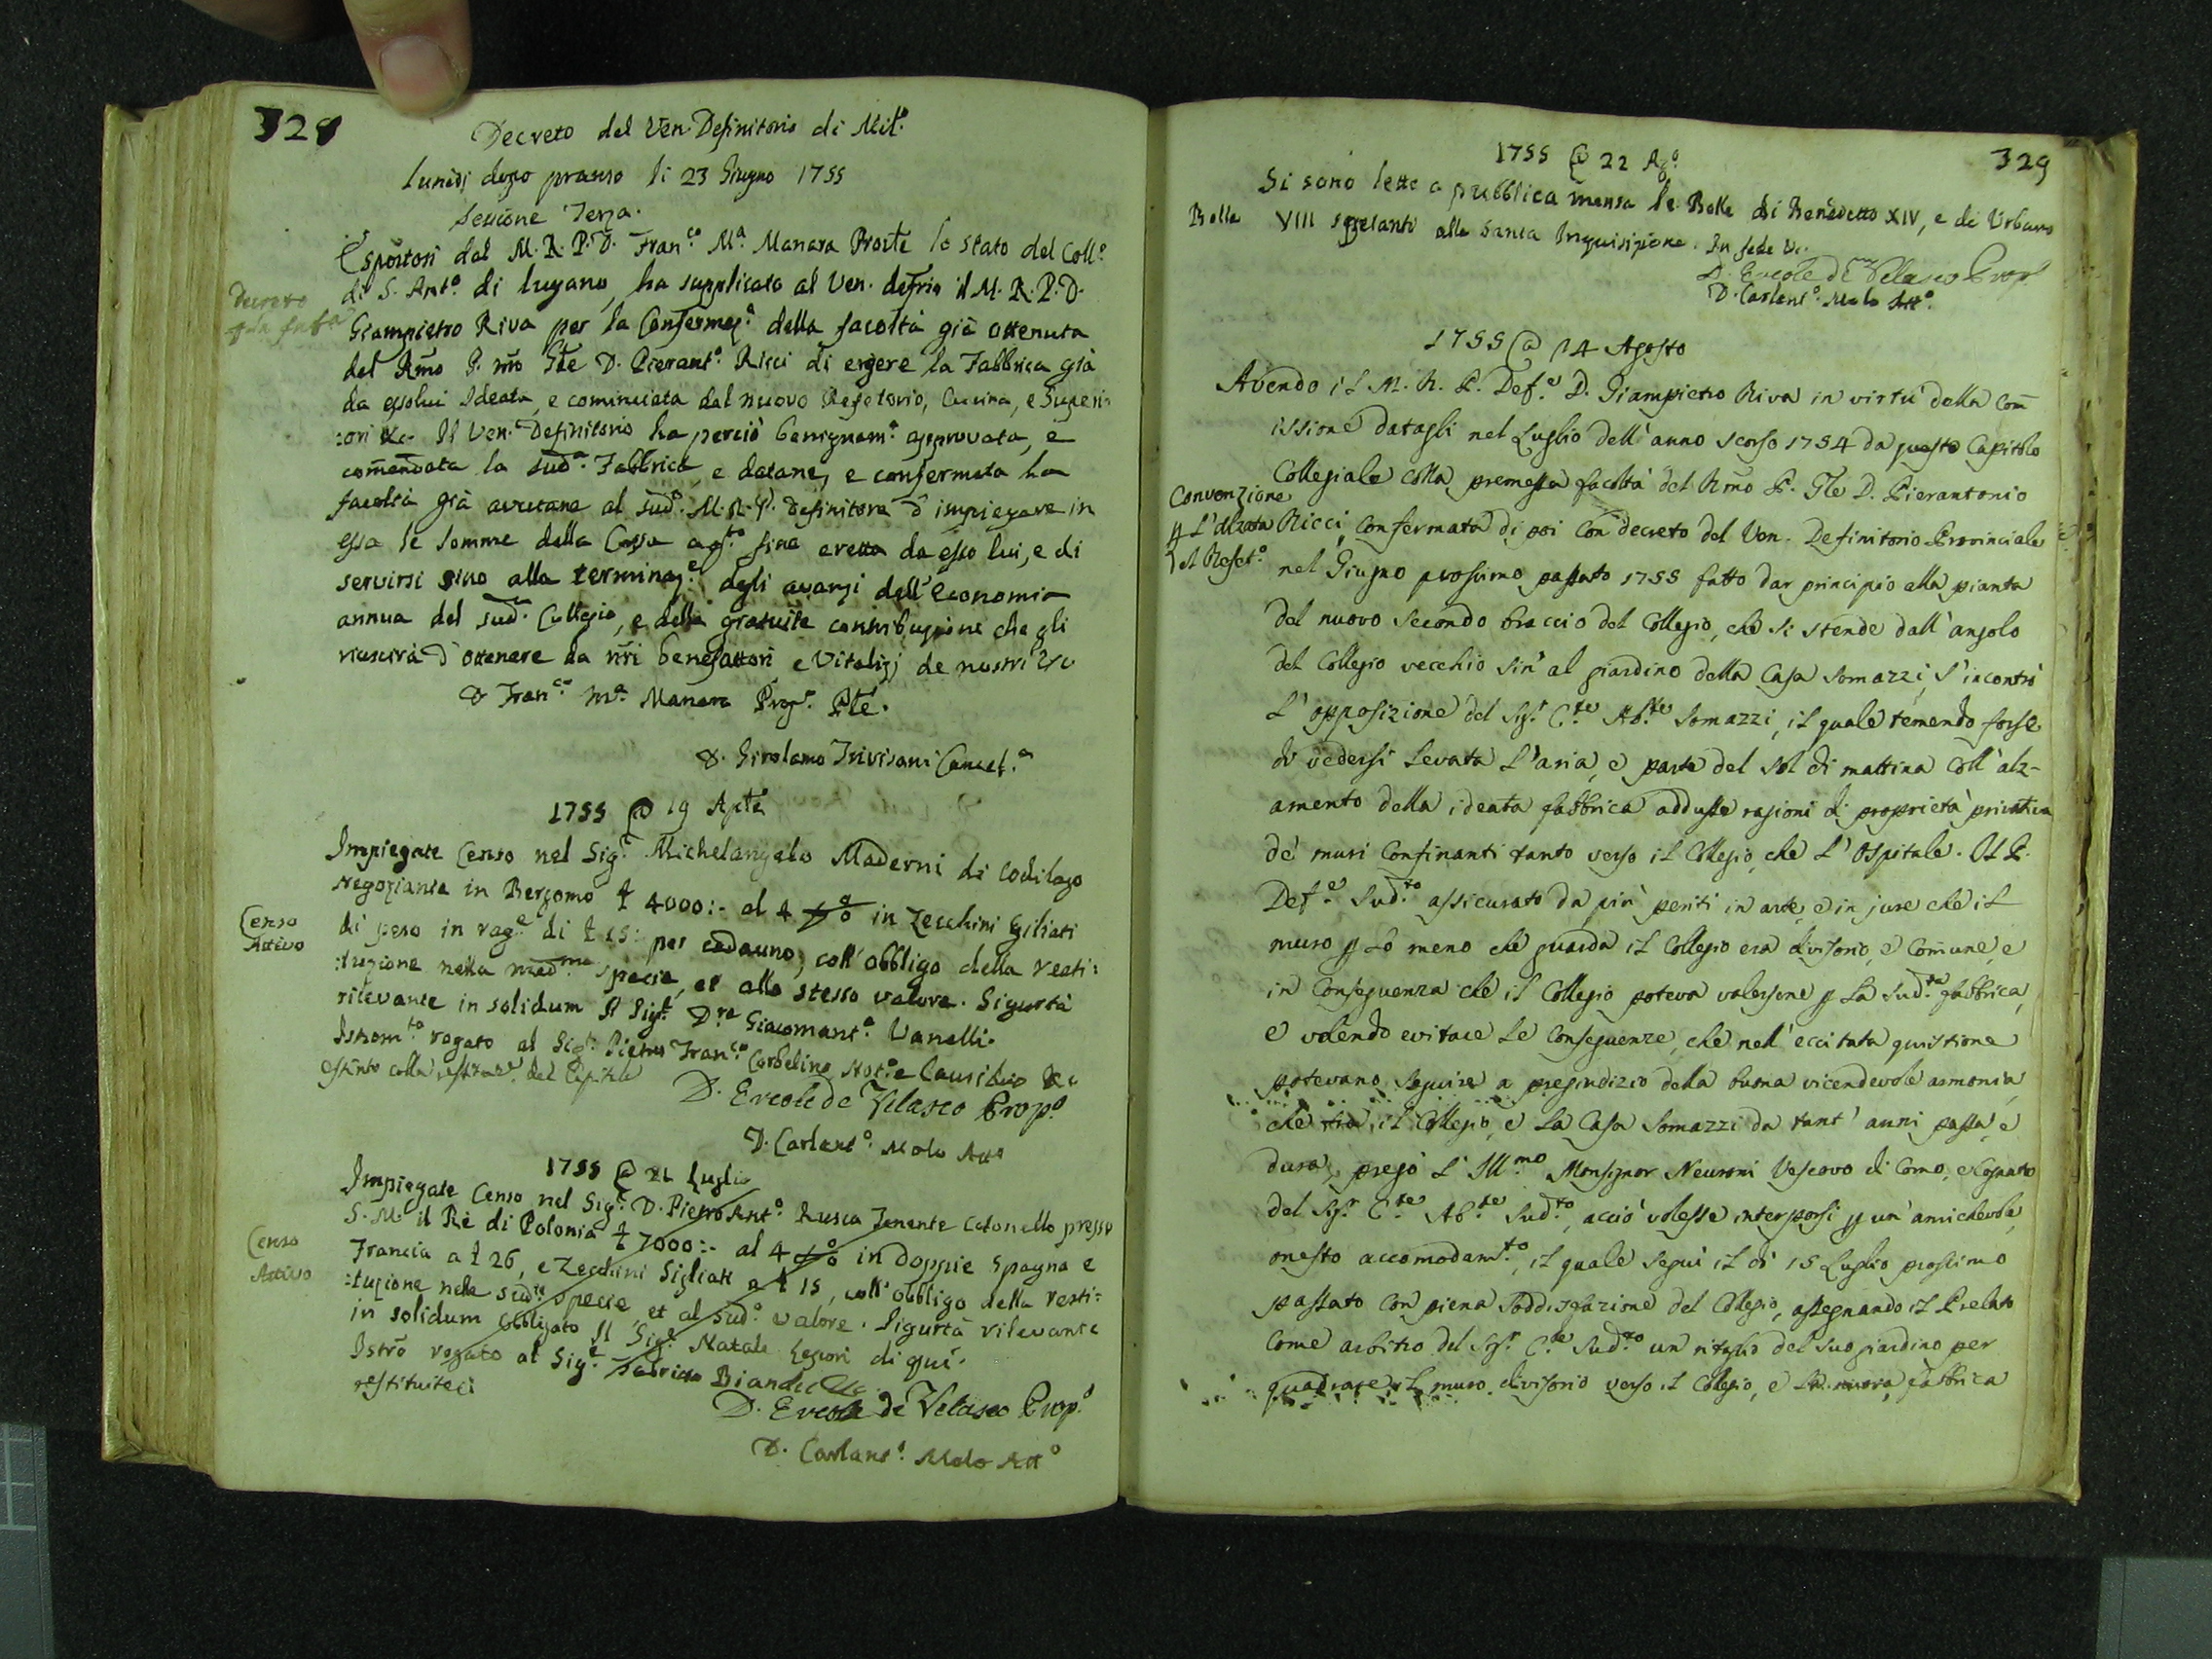 328
Decreto del Ven. Definitorio di Mil.o
lunedì dopo pranso li 23 Giugno 1755
sessione Terza.
Espostosi dal M. R. P. D. Fran.co M.a Manara Proste lo stato del Coll.o
di S. Ant.o di lugano, ha supplicato al Ven. defrio il M. R. P. D.
Decreto
Giampietro Riva per la Confermaz.e della facoltà già ottenuta
dal Rmo P. nro Gle D. Pierant.o Ricci di ergere la Fabbrica già
da essolui Ideata, e cominciata del nuovo Refetorio, Cucina, e Superi:
:ori &c. Il Ven. Definitorio ha perciò benignam.e approvata, e
comendata la sud.a Fabbrica, e datane, e confermata la
facoltà già avutane al sud.o M. R. P. Definitore d'impiegare in
essa le somme della Cassa a q.to fine eretta da esso lui, e di
servirsi sino alla terminaz.e degli avanzi dell'economia
annua del sud.o Collegio, e delle gratuite contribuzioni che gli
riuscirà d'ottenere da nri benefattori e Vitalizj de nostri &c
D Fran.co M.a Manara Prop.o Pte.
D. Girolamo Trivisani Cancel.e
1755 @ 19 Aple
Impiegate Censo nel Sig.r Michelangelo Maderni di Codilago
Negoziante in Bergomo £ 4000:- al 4 p% in Zecchini Giliati
Censo
Attivo
di peso in rag.e di £ 15: per cadauno, coll'obbligo della resti:
:tuzione nella med.ma specie, et allo stesso valore. Sigurtà
rilevante in solidum Il Sig.r D.re Giacomant.o Vanelli.
Istrom.to rogato al Sig.r Pietro Fran.co Corbelino Not.o e Causidico &c
estinto colla restituz.e del Capitale
D. Ercole de Velasco Prop.o
D. Carlant.o Molo Att.o
1755 @ 21 Luglio
Impiegate Censo nel Sig.r D. Pietro Ant.o Rusca Tenente Colonello presso
S. M. il Rè di Polonia £ 7000:- al 4 p% in doppie Spagna e
Censo
Attivo
Francia a £ 26, e Zecchini Gigliati a £ 15, coll'obbligo della resti:
:tuzione nelle sud.e specie, et al sud.o valore. Sigurtà rilevante
in solidum obbligato Il Sig.r Natale Lepori di qui.
Istro rogato al Sig.r Fabricio
restituiteci
D. Ercole de Velasco Prop.o
D. Carlant.o Molo Att.o
329
1755 @ 22 Ag.o
Si sono lette a pubblica mensa le Bolle di Benedetto XIV, e di Urbano
Bolle
VIII spettanti alla Santa Inquisizione. In fede &c.
D. Ercole de Velasco Prop.o
D. Carlant.o Molo Att.o
1755 @ 24 Agosto
Avendo il M. R. P. Def.e D. Giampietro Riva in virtù della Com
issione datagli nel Luglio dell'anno scorso 1754 da questo Capitolo
Collegiale colla premessa facoltà del Rmo P. Gle D. Pierantonio
Convenzione
p l'alzata
del Refet.o
Ricci, confermata di poi con decreto del Ven. Definitorio Provinciale
nel Giugno prossimo passato 1755 fatto dar principio alla pianta
del nuovo secondo braccio del Collegio, che si stende dall'angolo
del Collegio vecchio sin' al giardino della Casa Somazzi, s'incontrò
l'opposizione del Sig.r C.te Ab.te Somazzi, il quale temendo forse
di vedersi levata l'aria, e parte del sol di mattina coll'alz-
amento della ideata fabbrica addusse ragioni di proprietà privativa
de' muri confinanti tanto verso il Collegio, che l'Ospitale. Il P.
Def.e Sud.to assicurato da più periti in arte, e in jure che il
muro p lo meno che guarda il Collegio era divisorio, e comune, e
in conseguenza che il Collegio poteva valersene p la sud.ta fabbrica,
e volendo evitare le conseguenze, che nell'eccitata quistione
potevano seguire a pregiudizio della buona vicendevole armonia
che tra il Collegio, e la Casa Somazzi da tant'anni passa, e
dura, pregò l'Ill.mo Monsignor Neuroni Vescovo di Como, e Cognato
del Sig.r C.te Ab.te Sud.to, acciò volesse interporsi p un'amichevole,
onesto accomodam.to, il quale seguì il dì 15 Luglio prossimo
passato con piena soddisfazione del Collegio, assegnando il Prelato
come arbitro del Sig.r C.te Sud.to un ritaglio del suo giardino per
quadrare il muro divisorio verso il Collegio, e la nuova fabbrica